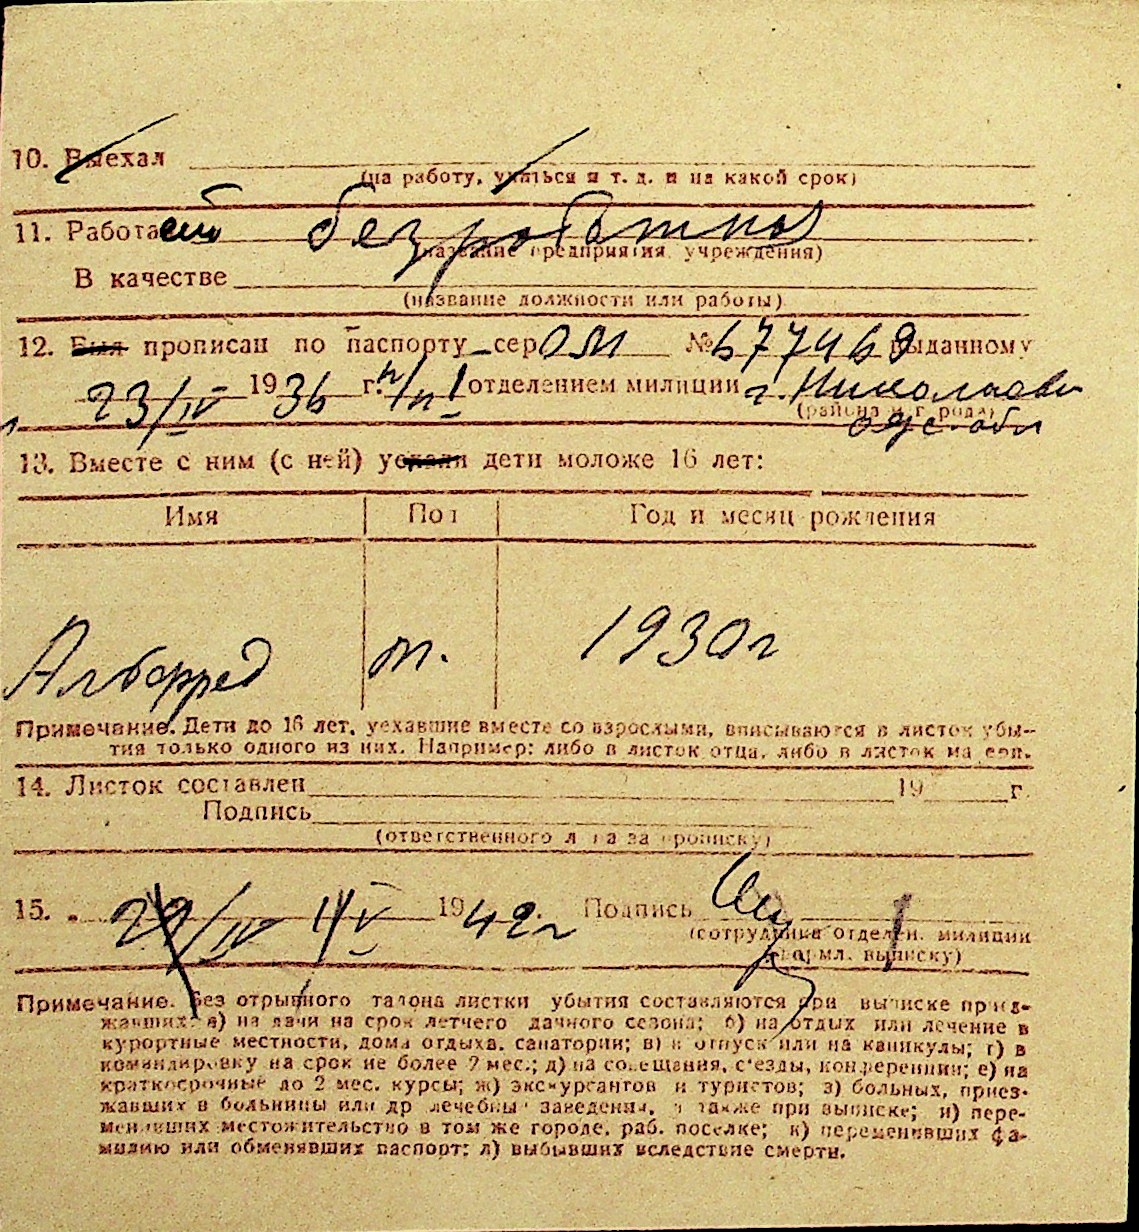 10. Выехал
(на работу, учиться и т. д. и на какой срок)
11. Работает безработный
(название предприятия, учреждения)
В качестве
(название должности или работы)
12. Был прописан по паспорту сер ОМ № 677469 выданному
23/IV 1936 г. отделением милиции г. Николаев
(района и г. рода)
одес. обл
13. Вместе с ним (с ней) уехали дети моложе 16 лет:
Имя Пол Год и месяц рождения
Альфред м. 1930 г
Примечание. Дети до 16 лет, уехавшие вместе со взрослыми, вписываются в листок убы-
тия только одного из них. Например: либо в листок отца, либо в листок матери.
14. Листок составлен 19 г.
Подпись
(ответственного лица за прописку)
15. 29/IV IV 1942 г Подпись
(сотрудника отделен. милиции
оформл. выписку)
Примечание. Без отрывного талона листки убытия составляются при выписке приез-
жавших: а) на дачи на срок летнего дачного сезона; б) на отдых или лечение в
курортные местности, дома отдыха, санатории; в) в отпуск или на каникулы; г) в
командировку на срок не более 2 мес.; д) на совещания, с'езды, конференции; е) на
краткосрочные до 2 мес. курсы; ж) экскурсантов и туристов; з) больных, приез-
жавших в больницы или др лечебные заведения, а также при выписке; и) пере-
менивших местожительство в том же городе, раб. поселке; к) переменивших фа-
милию или обменявших паспорт; л) выбывших вследствие смерти.